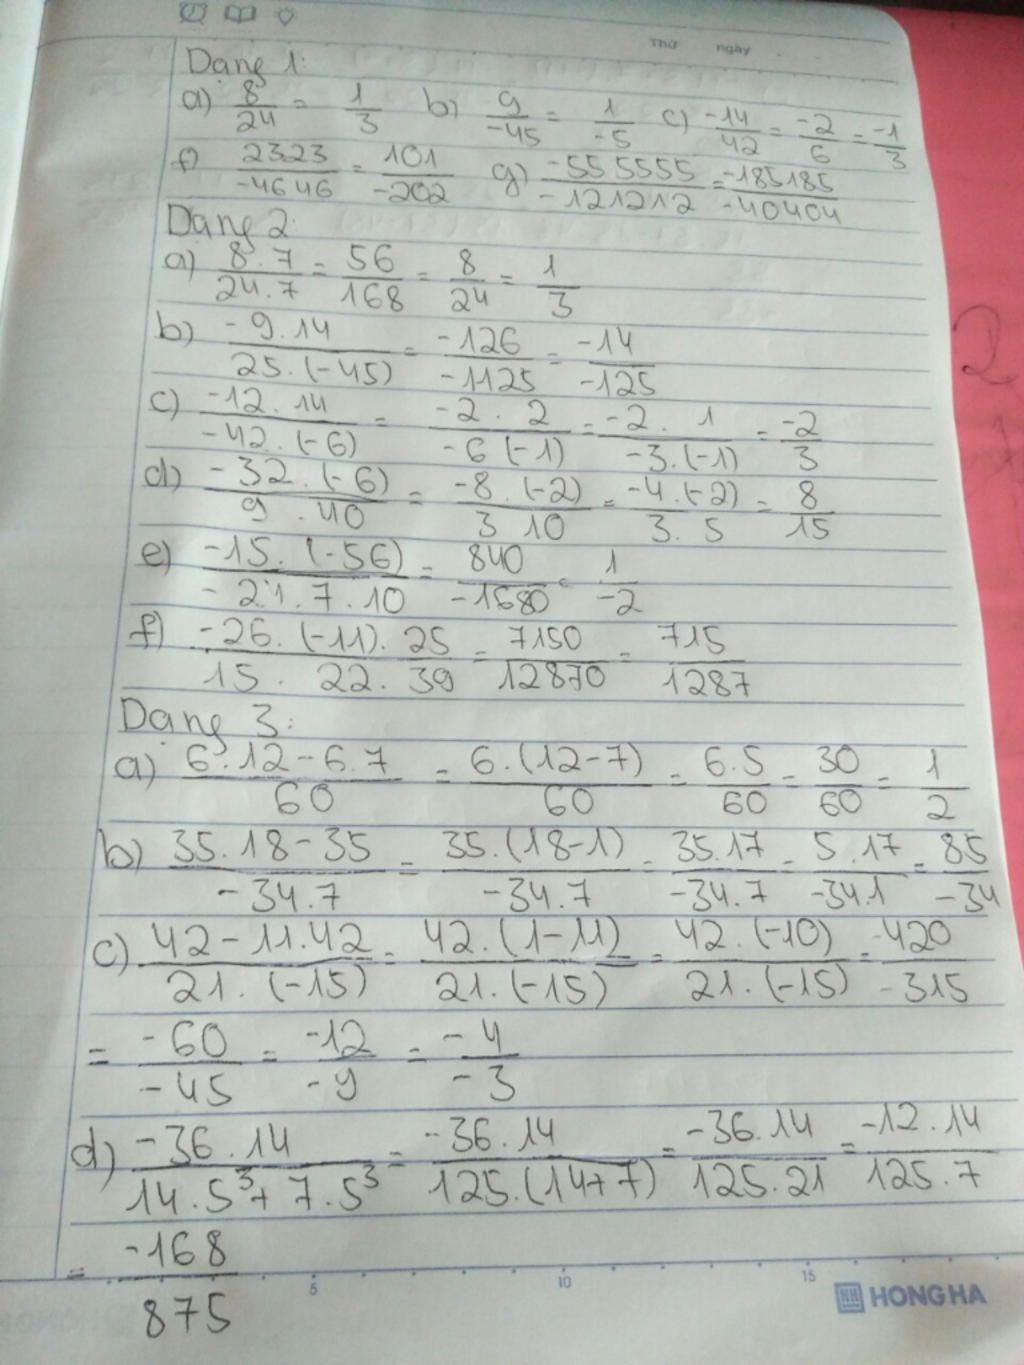 Thứ ngày
Dạng 1:
a) 8/24 = 1/3 b) 9/-45 = 1/-5 c) -14/42 = -2/6 = -1/3
f) 2323/-4646 = 101/-202 g) -555555/-121212 = -185185/-40404
Dạng 2:
a) 8.7/24.7 = 56/168 = 8/24 = 1/3
b) -9.14/25.(-45) = -126/-1125 = -14/-125
c) -12.14/-42.(-6) = -2.2/-6(-1) = -2.1/-3.(-1) = -2/3
d) -32.(-6)/9.40 = -8.(-2)/3 10 = -4.(-2)/3.5 = 8/15
e) -15.(-56)/-21.7.10 = 840/-1680 = 1/-2
f) -26.(-11).25/15.22.39 = 7150/12870 = 715/1287
Dạng 3:
a) 6.12-6.7/60 = 6.(12-7)/60 = 6.5/60 = 30/60 = 1/2
b) 35.18-35/-34.7 = 35.(18-1)/-34.7 = 35.17/-34.7 = 5.17/-34.1 = 85/-34
c) 42-11.42/21.(-15) = 42.(1-11)/21.(-15) = 42.(-10)/21.(-15) = -420/-315
= -60/-45 = -12/-9 = -4/-3
d) -36.14/14.5³+7.5³ = -36.14/125.(14+7) = -36.14/125.21 = -12.14/125.7
= -168/875
5 10 15
HH HONG HA